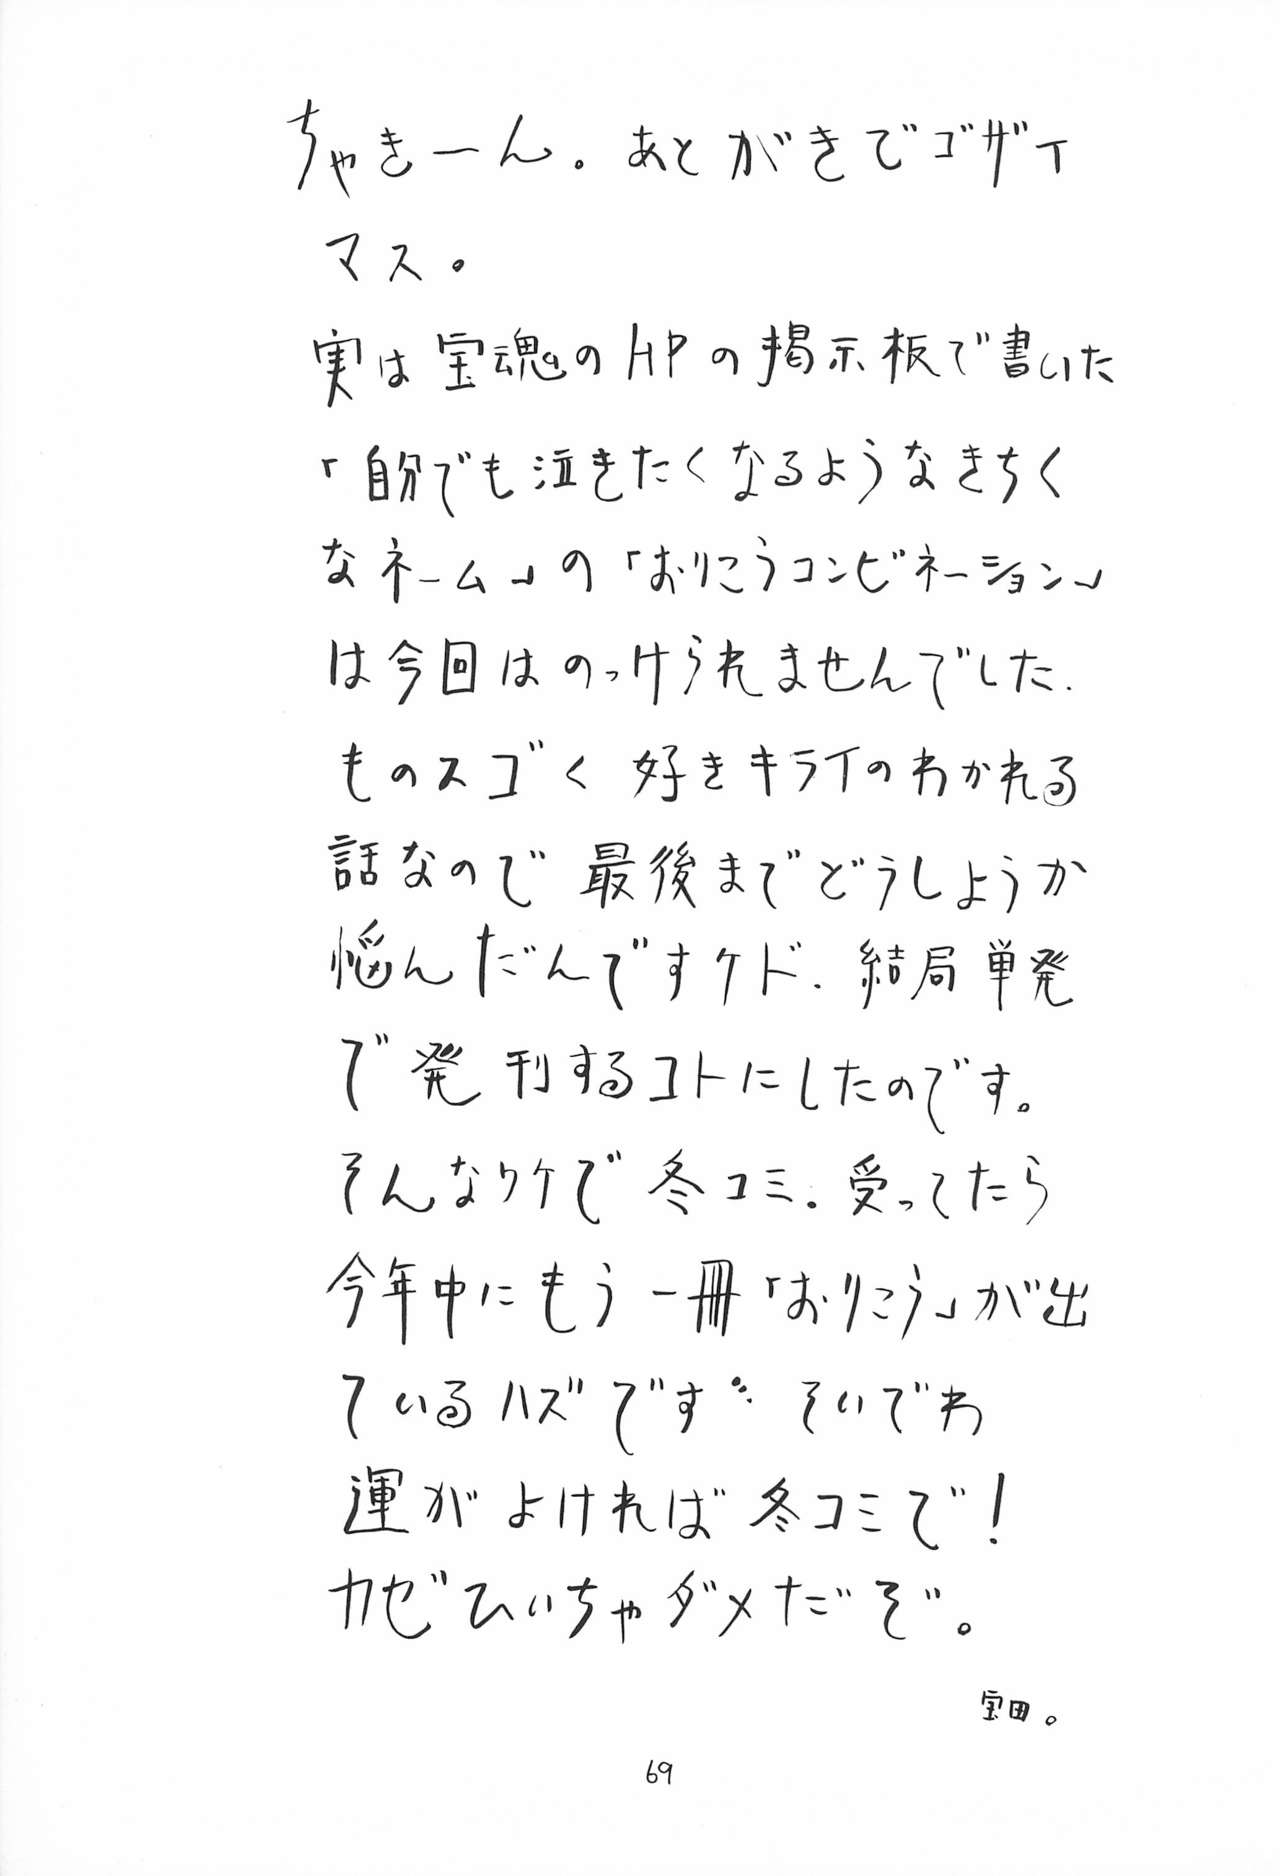 ちゃきーん。あとがきでゴザイ
マス。
実は宝魂のHPの掲示板で書いた
「自分でも泣きたくなるようなきちく
なネーム」の「おりこうコンビネーション」
は今回はのっけられませんでした.
ものスゴく好きキライのわかれる
話なので最後までどうしようか
悩んだんですケド.結局単発
で発刊するコトにしたのです。
そんなワケで冬コミ.受ってたら
今年中にもう一冊「おりこう」が出
ているハズです そいでわ
運がよければ冬コミで!
カゼひいちゃダメだぞ。
宝田。
69